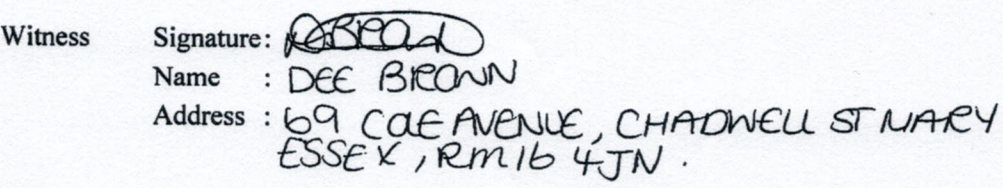 Witness Signature: DBrown
Name : DEE BROWN
Address : 69 COLE AVENUE, CHADWELL ST MARY
ESSEX, RM16 4JN.